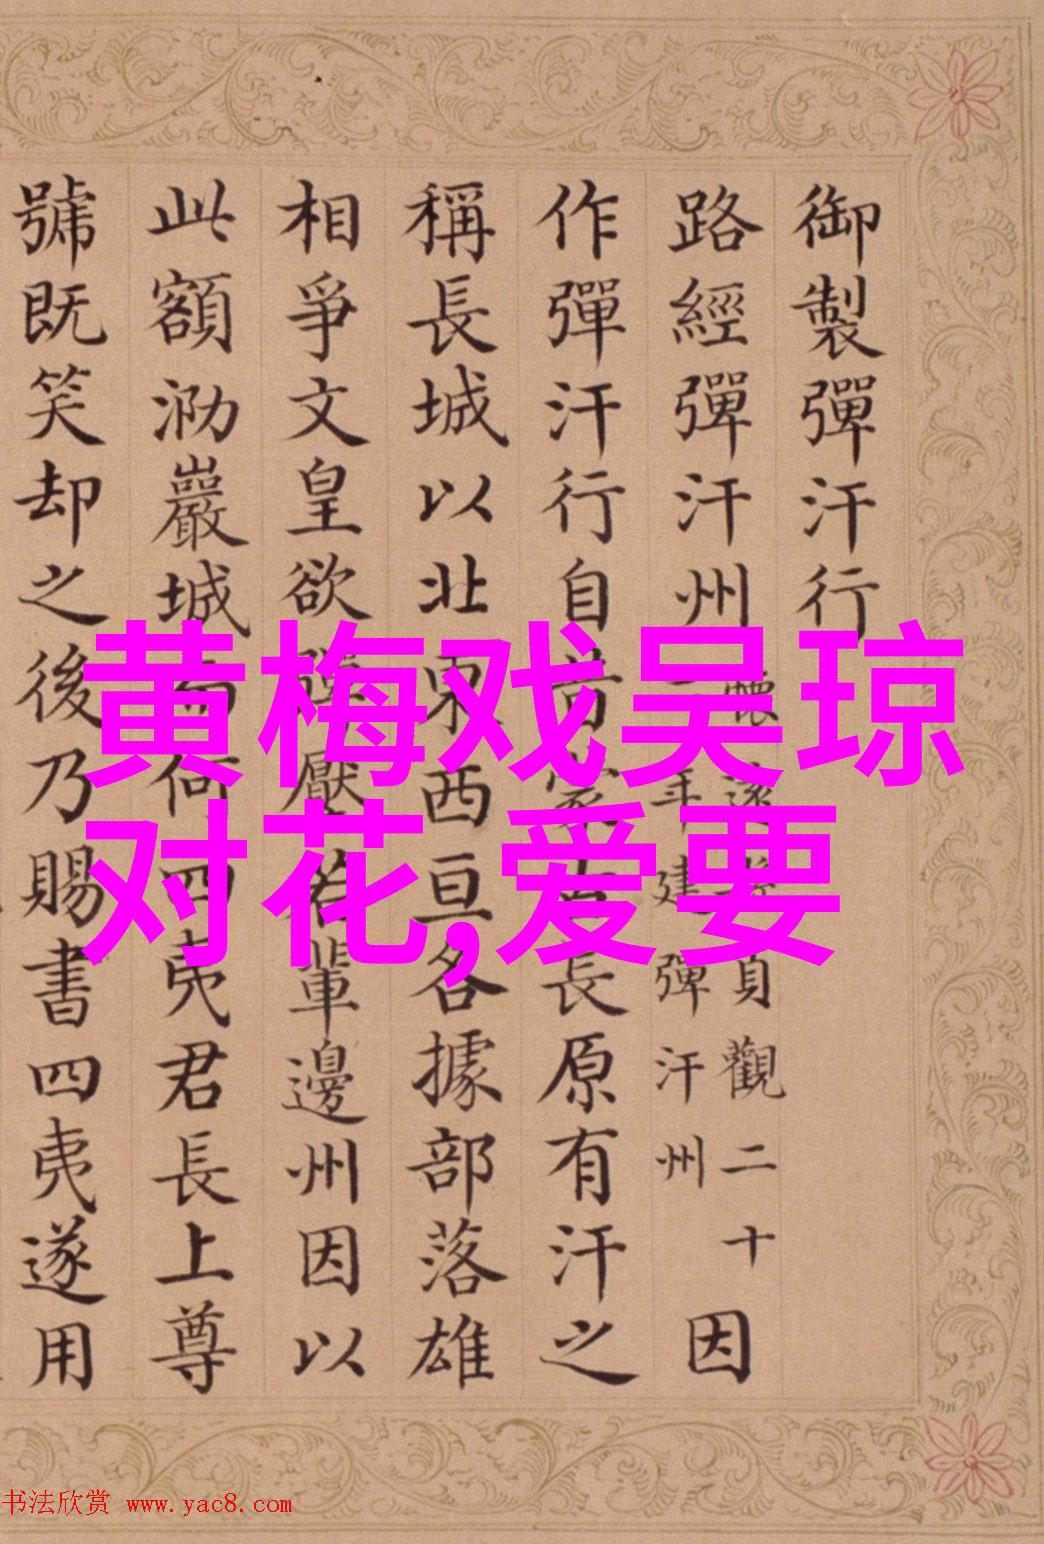 御製彈汗行
路經彈汗州
貞觀二十
年建彈汗州
因
作彈汗行自昔長原有汗之
稱長城以北東西亘各據部落雄
相爭文皇欲壓若輩邊州因以
此額泐巖城何四夷君長上尊
號既笑却之後乃賜書四夷遂用
黄梅戏吴琼
对花,爱要
书法欣赏 www.yac8.com